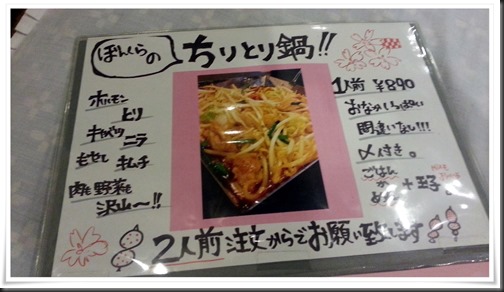 ぼんくらの
ちりとり鍋!!
ホルモン
とり
キャベツ
ニラ
もやし
キムチ
肉も野菜も
沢山〜!!
1人前 ¥890
おなかいっぱい
間違いない!!!
〆付き。
ごはん
か
めん
+玉子
2人前注文からでお願い致してます